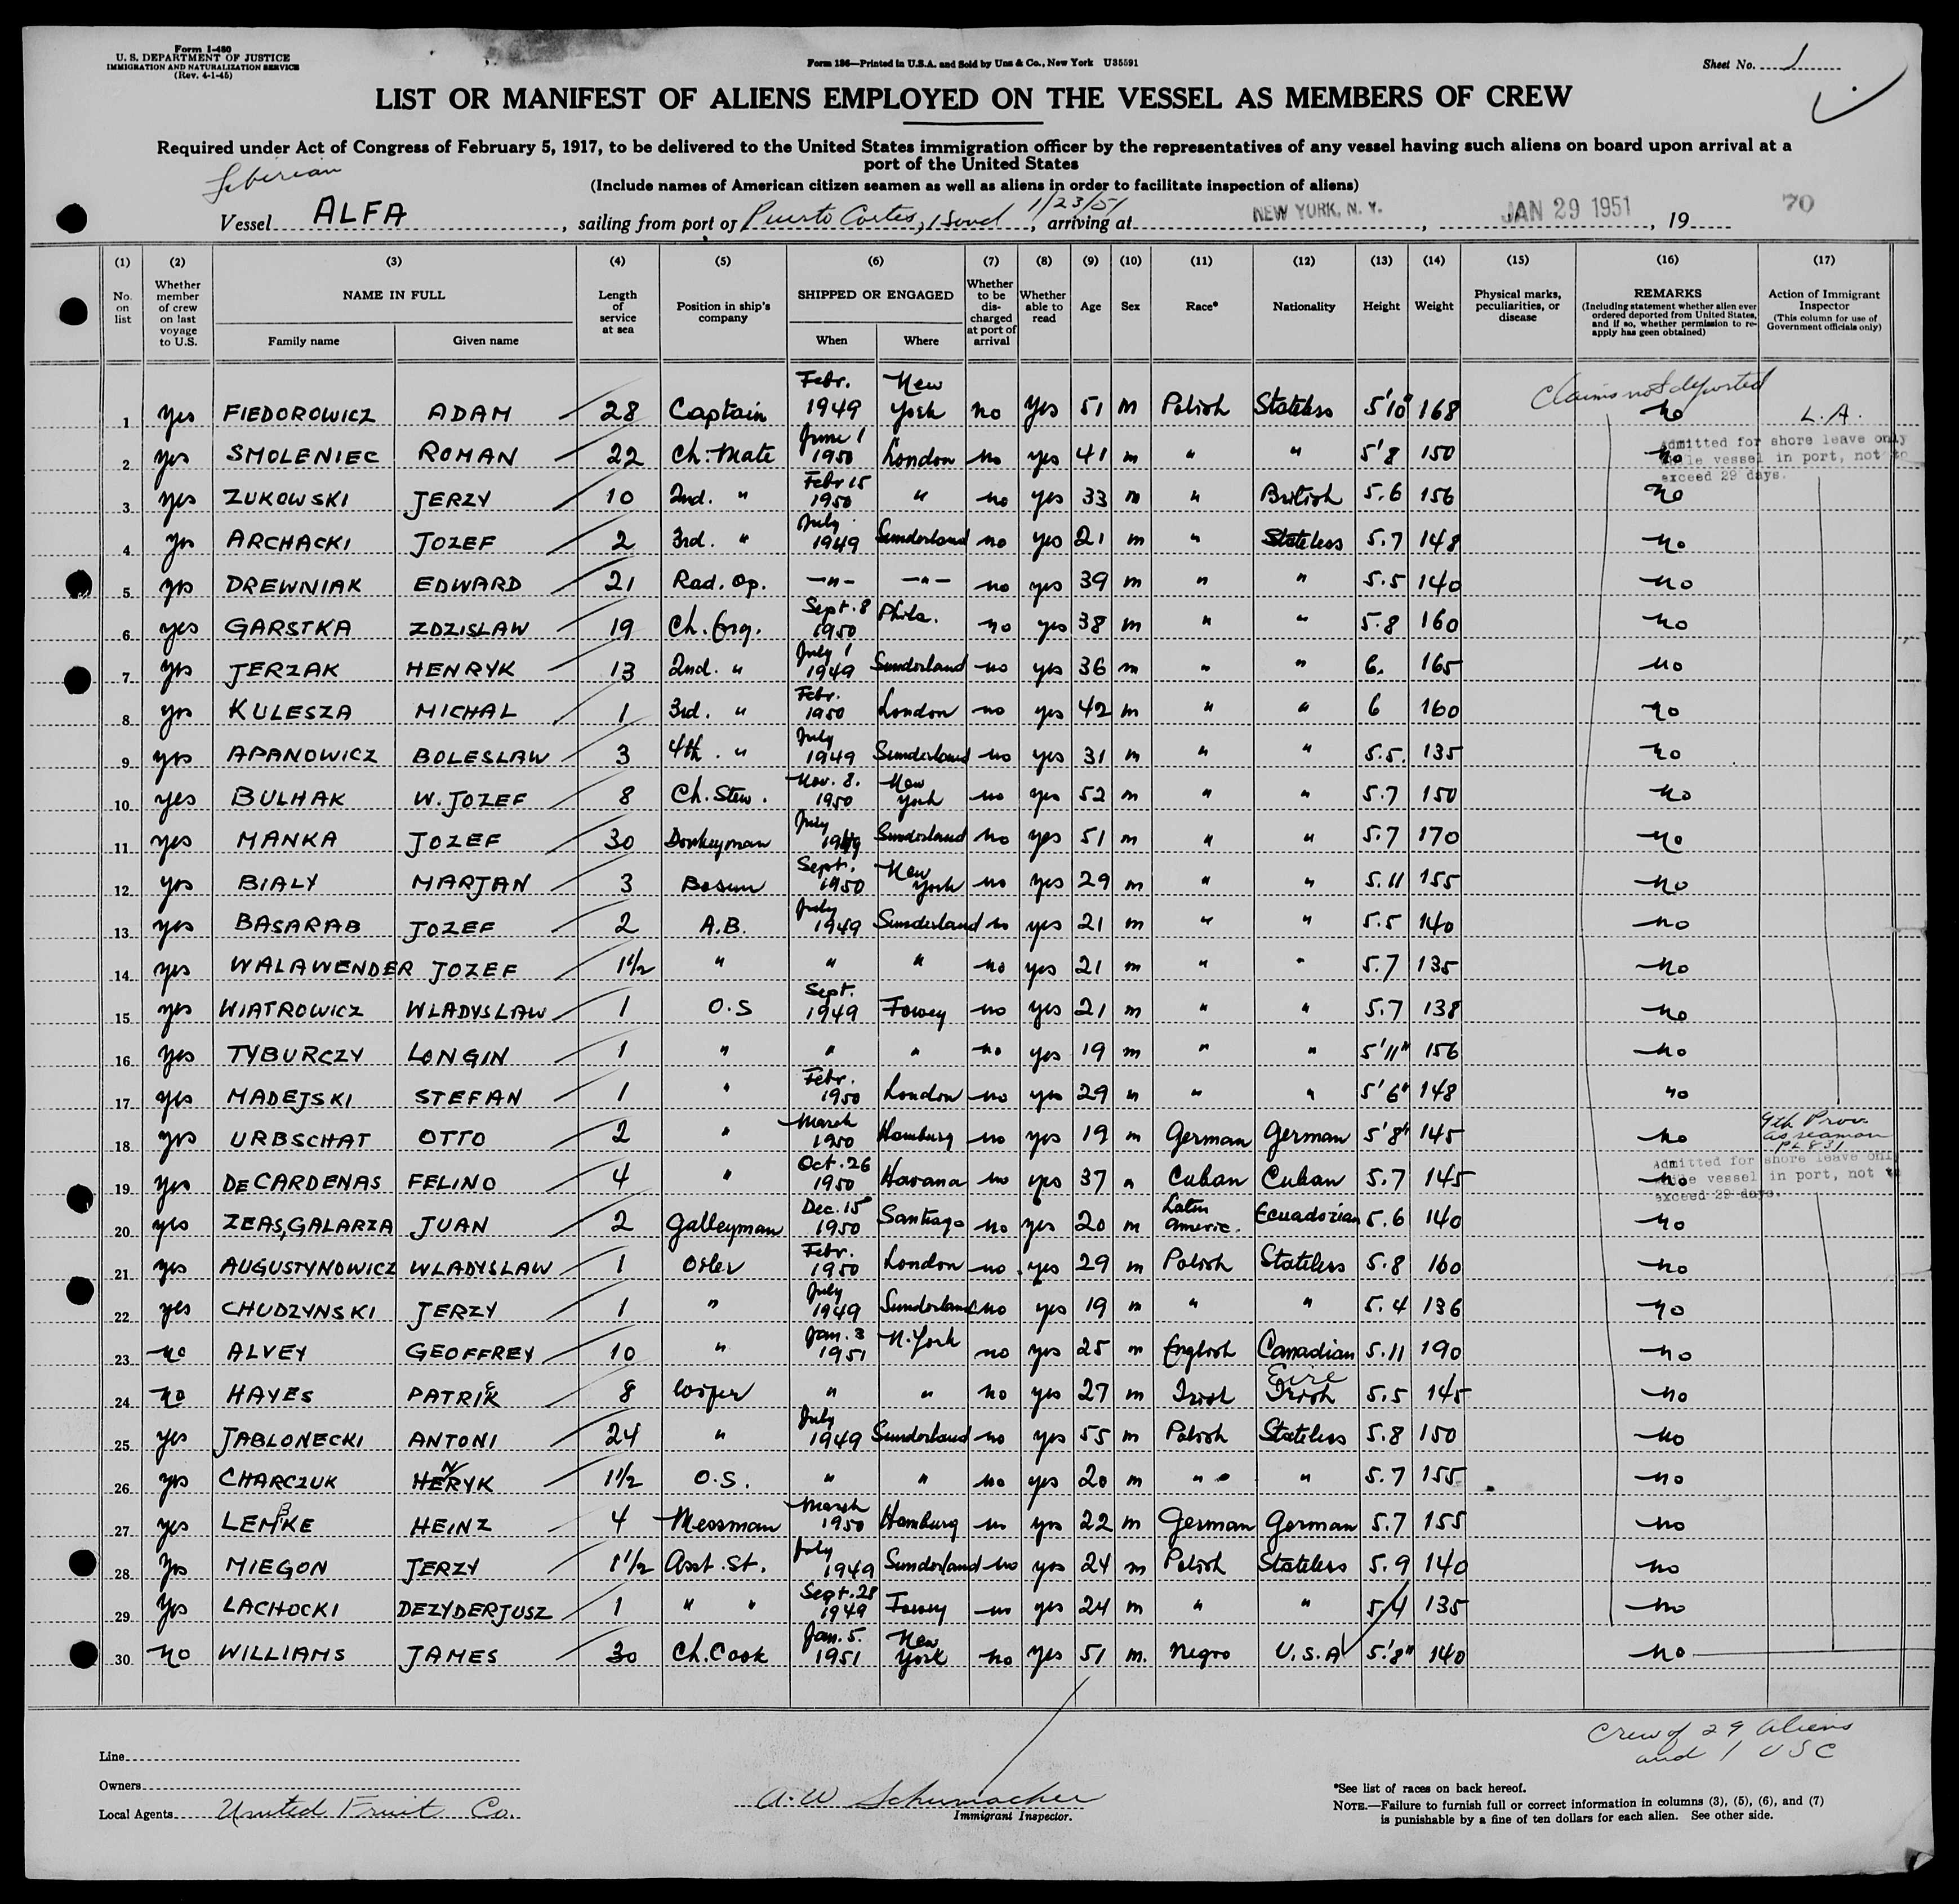 Form I-480
U. S. DEPARTMENT OF JUSTICE
IMMIGRATION AND NATURALIZATION SERVICE
(Rev. 4-1-45)
Form 136—Printed in U.S.A. and Sold by Unz & Co., New York U35591
Sheet No. 1
LIST OR MANIFEST OF ALIENS EMPLOYED ON THE VESSEL AS MEMBERS OF CREW
Required under Act of Congress of February 5, 1917, to be delivered to the United States immigration officer by the representatives of any vessel having such aliens on board upon arrival at a
port of the United States
(Include names of American citizen seamen as well as aliens in order to facilitate inspection of aliens)
Liberian
Vessel ALFA, sailing from port of Puerto Cortes, Hond 1/23/51, arriving at NEW YORK, N. Y., JAN 29 1951, 19 70
(1) (2) (3) (4) (5) (6) (7) (8) (9) (10) (11) (12) (13) (14) (15) (16) (17)
No. on list
Whether member of crew on last voyage to U.S.
NAME IN FULL
Family name Given name
Length of service at sea
Position in ship's company
SHIPPED OR ENGAGED
When Where
Whether to be discharged at port of arrival
Whether able to read
Age
Sex
Race*
Nationality
Height
Weight
Physical marks, peculiarities, or disease
REMARKS
(Including statement whether alien ever ordered deported from United States, and if so, whether permission to re-apply has geen obtained)
Action of Immigrant Inspector
(This column for use of Government officials only)
Claims not deported
1 yes FIEDOROWICZ ADAM 28 Captain Febr. 1949 New York no yes 51 m Polish Stateless 5'10" 168 no L. A.
Admitted for shore leave only
while vessel in port, not to
exceed 29 days.
2 yes SMOLENIEC ROMAN 22 Ch. Mate June 1 1950 London no yes 41 m " " 5'8 150 no
3 yes ZUKOWSKI JERZY 10 2nd. " Febr 15 1950 " no yes 33 m " British 5.6 156 no
4 yes ARCHACKI JOZEF 2 3rd. " July 1949 Sunderland no yes 21 m " Stateless 5.7 148 no
5 yes DREWNIAK EDWARD 21 Rad. Op. —"— —"— no yes 39 m " " 5.5 140 no
6 yes GARSTKA ZDZISLAW 19 Ch. Eng. Sept. 8 1950 Phila. no yes 38 m " " 5.8 160 no
7 yes JERZAK HENRYK 13 2nd. " July 1 1949 Sunderland no yes 36 m " " 6. 165 no
8 yes KULESZA MICHAL 1 3rd. " Febr. 1950 London no yes 42 m " " 6 160 no
9 yes APANOWICZ BOLESLAW 3 4th. " July 1949 Sunderland no yes 31 m " " 5.5. 135 no
10 yes BULHAK W. JOZEF 8 Ch. Stew. Nov. 8. 1950 New York no yes 52 m " " 5.7 150 no
11 yes MANKA JOZEF 30 Donkeyman July 1949 Sunderland no yes 51 m " " 5.7 170 no
12 yes BIALY MARJAN 3 Bosun Sept. 1950 New York no yes 29 m " " 5.11 155 no
13 yes BASARAB JOZEF 2 A.B. July 1949 Sunderland no yes 21 m " " 5.5 140 no
14 yes WALAWENDER JOZEF 1 1/2 " " " no yes 21 m " " 5.7 135 no
15 yes WIATROWICZ WLADYSLAW 1 O.S Sept. 1949 Fowey no yes 21 m " " 5.7 138 no
16 yes TYBURCZY LONGIN 1 " " " no yes 19 m " " 5'11" 156 no
17 yes MADEJSKI STEFAN 1 " Febr. 1950 London no yes 29 m " " 5'6" 148 no
18 yes URBSCHAT OTTO 2 " March 1950 Hamburg no yes 19 m German German 5'8" 145 no 9th Prov. as seaman PL 831
Admitted for shore leave only
while vessel in port, not to
exceed 29 days.
19 yes DE CARDENAS FELINO 4 " Oct. 26 1950 Havana no yes 37 m Cuban Cuban 5.7 145 no
20 yes ZEAS, GALARZA JUAN 2 Galleyman Dec. 15 1950 Santiago no yes 20 m Latin Americ. Ecuadorian 5.6 140 no
21 yes AUGUSTYNOWICZ WLADYSLAW 1 Oiler Febr. 1950 London no yes 29 m Polish Stateless 5.8 160 no
22 yes CHUDZYNSKI JERZY 1 " July 1949 Sunderland no yes 19 m " " 5.4 136 no
23 no ALVEY GEOFFREY 10 " Jan. 3 1951 N. York no yes 25 m English Canadian 5.11 190 no
24 no HAYES PATRICK 8 Wiper " " no yes 27 m Irish Eire Irish 5.5 145 no
25 yes JABLONECKI ANTONI 24 " July 1949 Sunderland no yes 55 m Polish Stateless 5.8 150 no
26 yes CHARCZUK HENRYK 1 1/2 O.S. " " no yes 20 m " " 5.7 155 no
27 yes LEMBKE HEINZ 4 Messman March 1950 Hamburg no yes 22 m German German 5.7 155 no
28 yes MIEGON JERZY 1 1/2 Asst. St. July 1949 Sunderland no yes 24 m Polish Stateless 5.9 140 no
29 yes LACHOCKI DEZYDERJUSZ 1 " " Sept. 28 1949 Fowey no yes 24 m " " 5.4 135 no
30 no WILLIAMS JAMES 30 Ch. Cook Jan. 5. 1951 New York no yes 51 m. Negro U.S.A 5'.8" 140 no
Crew of 29 aliens
and 1 USC
Line
Owners
Local Agents United Fruit Co.
A. W Schumacher
Immigrant Inspector.
*See list of races on back hereof.
NOTE.—Failure to furnish full or correct information in columns (3), (5), (6), and (7)
is punishable by a fine of ten dollars for each alien. See other side.